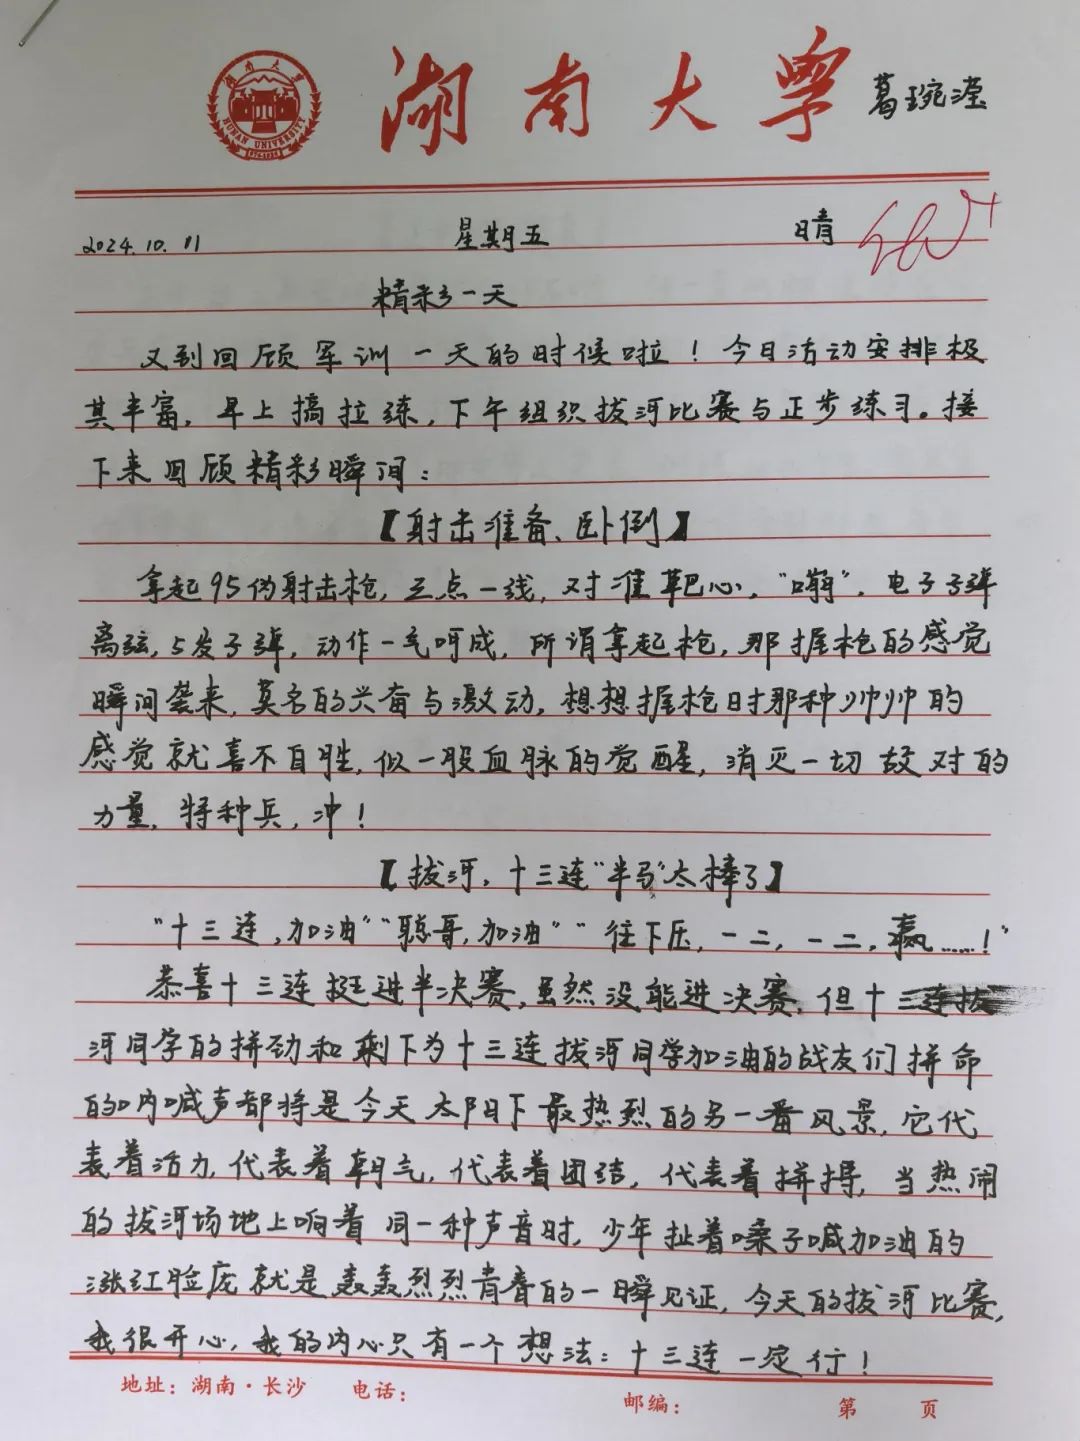 湖南大学 葛琬滢
湖南大学
HUNAN UNIVERSITY
2024.10.11 星期五 晴
精彩一天
又到回顾军训一天的时候啦！今日活动安排极
其丰富，早上搞拉练，下午组织拔河比赛与正步练习。接
下来回顾精彩瞬间：
【射击准备、卧倒】
拿起95伪射击枪，三点一线，对准靶心，“嘣”，电子子弹
离弦，5发子弹，动作一气呵成，所谓拿起枪，那握枪的感觉
瞬间袭来，莫名的兴奋与激动，想想握枪时那种帅帅的
感觉就喜不自胜，似一股血脉的觉醒，消灭一切敌对的
力量，特种兵，冲！
【拔河，十三连“半马”太棒了】
“十三连，加油”“聪哥，加油”“往下压，一二，一二，赢……！”
恭喜十三连挺进半决赛，虽然没能进决赛，但十三连拔
河同学的拼劲和剩下为十三连拔河同学加油的战友们拼命
的呐喊声都将是今天太阳下最热烈的另一番风景，它代
表着活力，代表着朝气，代表着团结，代表着拼搏，当热闹
的拔河场地上响着同一种声音时，少年扯着嗓子喊加油的
涨红脸庞就是轰轰烈烈青春的一瞬见证，今天的拔河比赛，
我很开心，我的内心只有一个想法：十三连一定行！
地址：湖南·长沙 电话： 邮编： 第 页